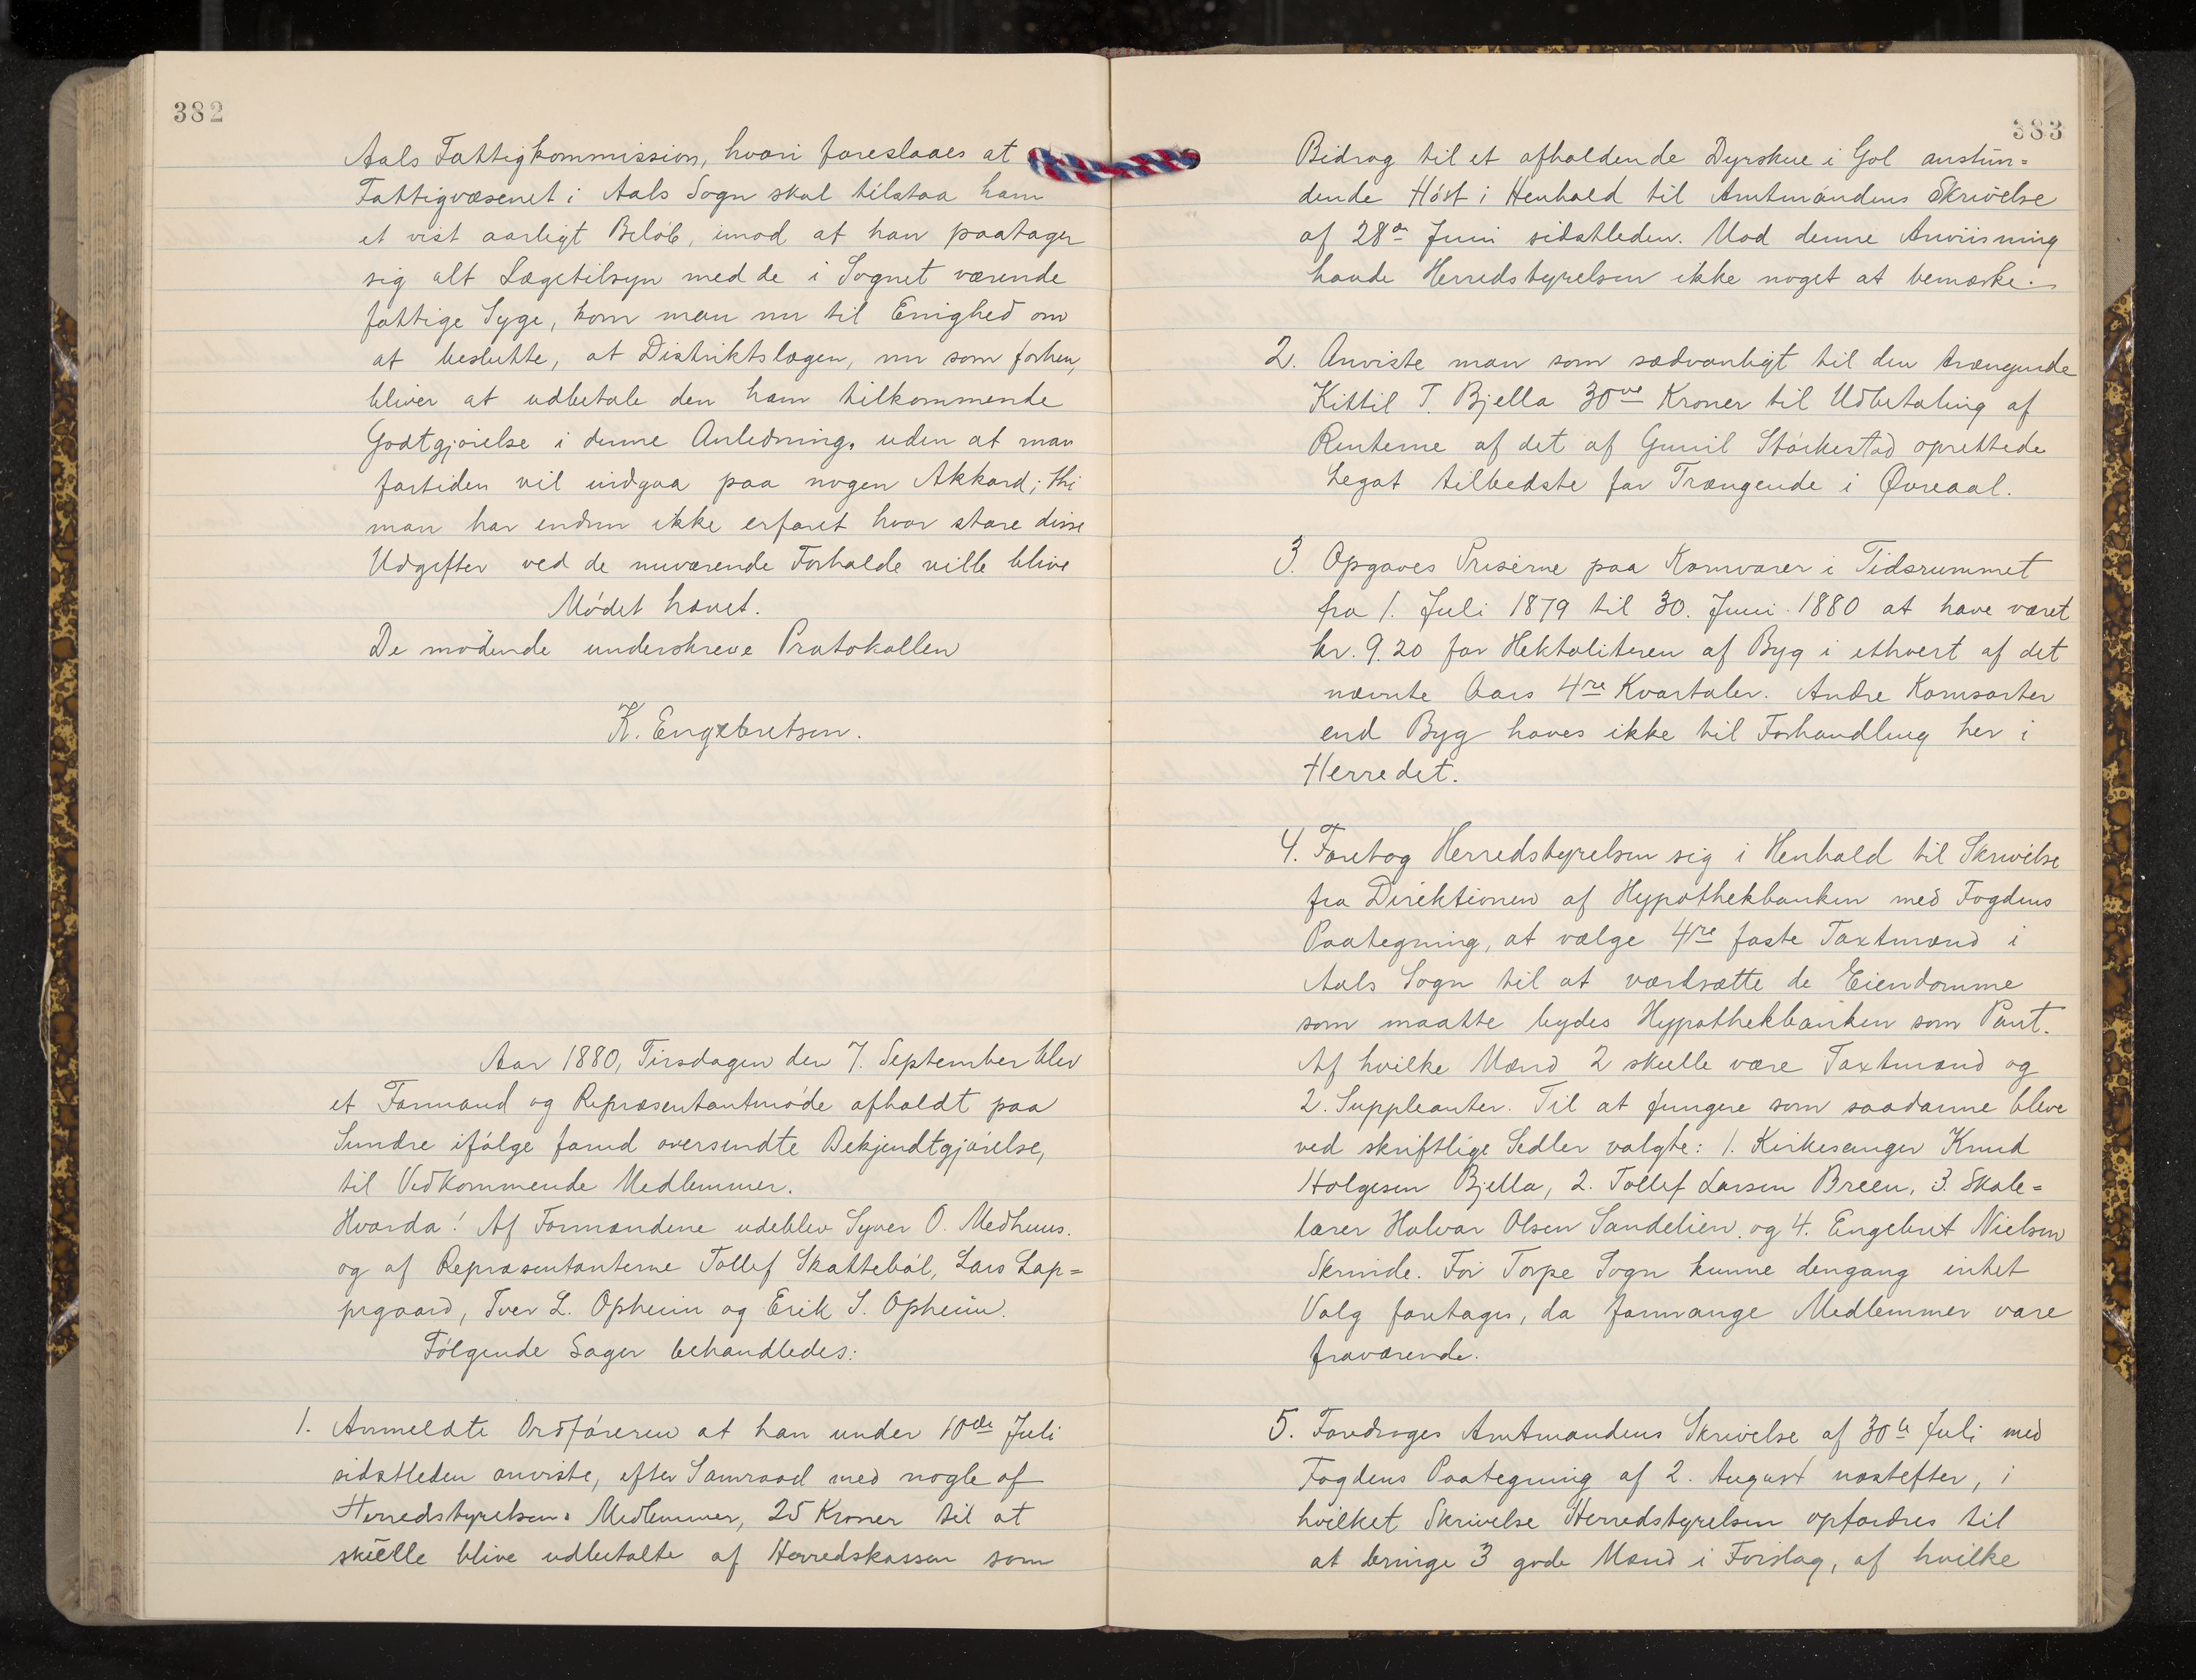 382
Aals Fattigkommission, hvori foreslaaes at
Fattigvæsenet i Aals Sogn skal tilstaa ham
et vist aarligt Beløb, imod at han paatager
sig alt Lægetilsyn med de i Sognet værende
fattige Syge, kom man nu til Enighed om
at beslutte, at Distriktslægen, nu som forhen,
bliver at udbetale den ham tilkommende
Godtgjørelse i denne Anledning, uden at man
fortiden vil indgaa paa nogen Akkord; thi
man har endnu ikke erfaret hvor store disse
Udgifter ved de nuværende Forholde ville blive
Mødet hævet.
De mødende underskreve Protokollen
K. Engebretsen.
Aar 1880, Tirsdagen den 7. September blev
et Formand og Repræsentantmøde afholdt paa
Sundre ifølge forud oversendte Bekjendtgjørelse,
til Vedkommende Medlemmer.
Hvorda! Af Formændene udeblev Syver O. Medhuus.
og af Repræsentanterne Tollef Skattebøl, Lars Lap=
pegaard, Iver L. Opheim og Erik S. Opheim.
Følgende Sager behandledes:
1. Anmeldte Ordføreren at han under 10de Juli
sidstleden anviste, efter Samraad med nogle af
Herredstyrelsens Medlemmer, 25 Kroner til at
skulle blive udbetalte af Herredskassen som
383
Bidrag til et afholdende Dyrskue i Gol anstun=
dende Høst i Henhold til Amtmandens Skrivelse
af 28de Juni sidstleden. Mod denne Anviisning
havde Herredstyrelsen ikke noget at bemærke.
2. Anviste man som sædvanligt til den trængende
Kittil T. Bjella 30ve Kroner til Udbetaling af
Renterne af det af Gunil Stårkestad oprettede
Legat tilbedste for Trængende i Øvreaal.
3. Opgaves Priserne paa Kornvarer i Tidsrummet
fra 1. Juli 1879 til 30. Juni 1880 at have været
kr. 9.20 for Hektoliteren af Byg i ethvert af det
nævnte Aars 4re Kvartaler. Andre Kornsorter
end Byg haves ikke til Forhandling her i
Herredet.
4. Foretog Herredstyrelsen sig i Henhold til Skrivelse
fra Direktionen af Hypothekbanken med Fogdens
Paategning, at vælge 4re faste Taxtmænd i
Aals Sogn til at værdsætte de Eiendomme
som maatte bydes Hypothekbanken som Pant.
Af hvilke Mænd 2 skulle være Taxtmænd og
2. Suppleanter. Til at fungere som saadanne bleve
ved skriftlige Sedler valgte: 1. Kirkesanger Knud
Holgesen Bjella, 2. Tollef Larsen Breen, 3. Skole=
lærer Halvor Olsen Sandelien. og 4. Engebret Nielsen
Skrinde. For Torpe Sogn kunne dengang intet
Valg foretages, da formange Medlemmer vare
fraværende.
5. Foredroges Amtmandens Skrivelse af 30te Juli med
Fogdens Paategning af 2. August næstefter, i
hvilket Skrivelse Herredstyrelsen opfordres til
at bringe 3 gode Mænd i Forslag, af hvilke